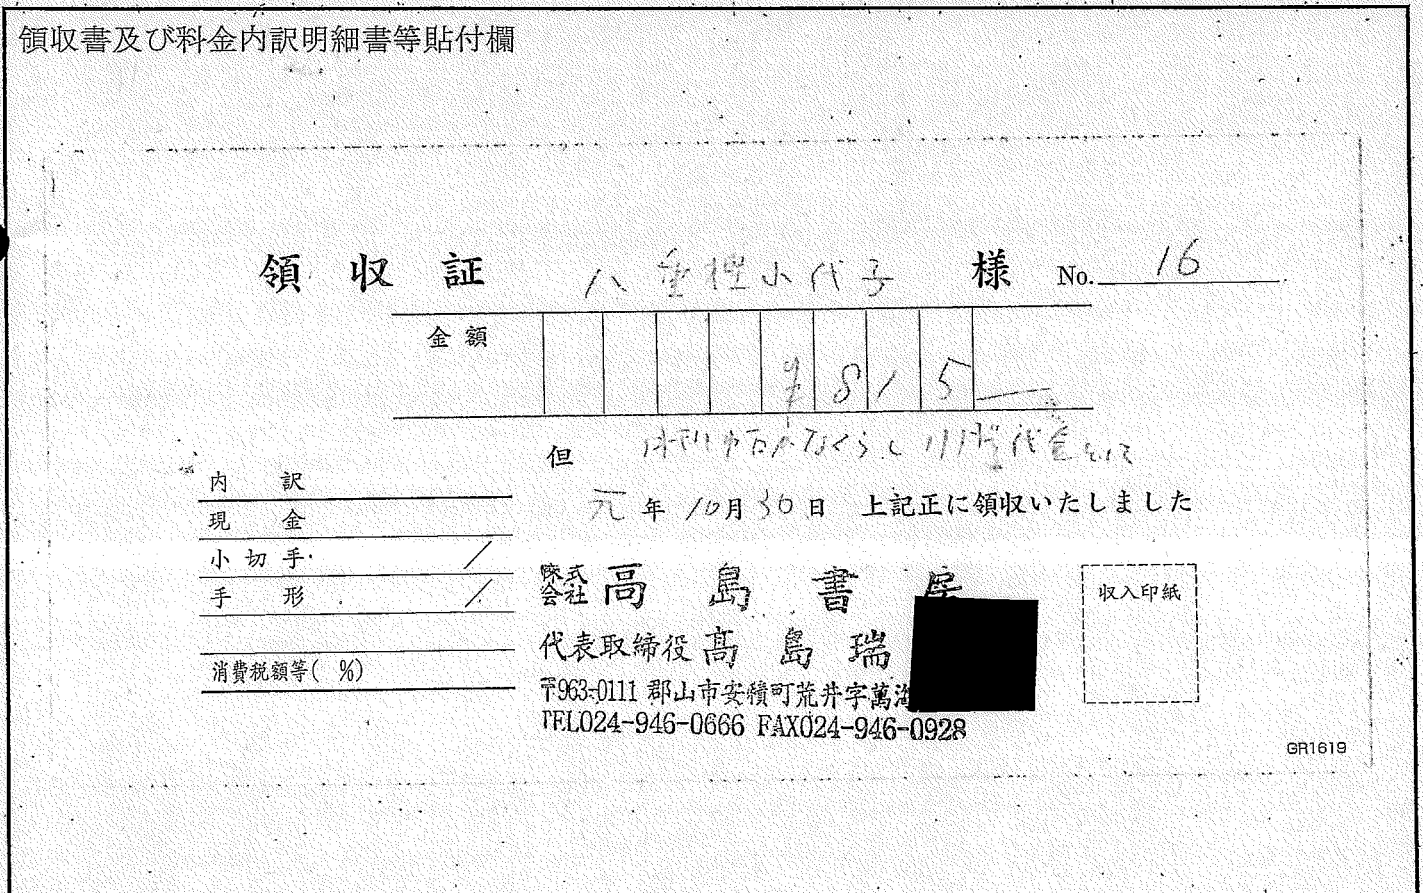 領収書及び料金内訳明細書等貼付欄
領収証 八重樫小代子 様 No. 16
金額 ¥815
但 代金として
元年10月30日 上記正に領収いたしました
内訳
現金
小切手
手形
消費税額等( %)
株式会社 高島書房
代表取締役 髙島瑞
〒963-0111 郡山市安積町荒井字萬海
TEL024-946-0666 FAX024-946-0928
収入印紙
GR1619